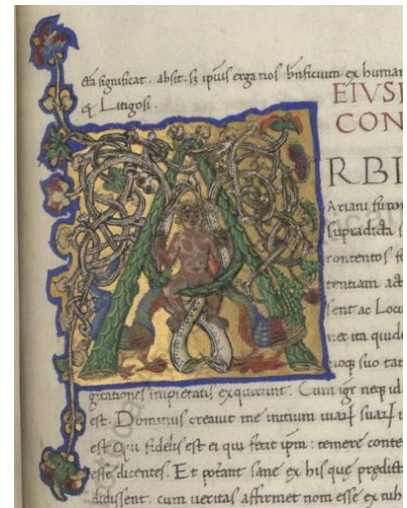 significat. absit. sz ipius erga nos bnficium ex human
& Litigosi.
EIVS
CON
RBI
Ariani furor
supradicta
contentos
tentiam
sent ac Locu
nec ita quide
suo tar
impietatis exquirunt. Cum neq id
est. Dominus creavit me initium
est. Qui fidelis est ei qui fecit ipm: temere conte
esse dicentes. Et potant sane ex his que predict
didissent. cum veritas affirmet nom esse ex nih